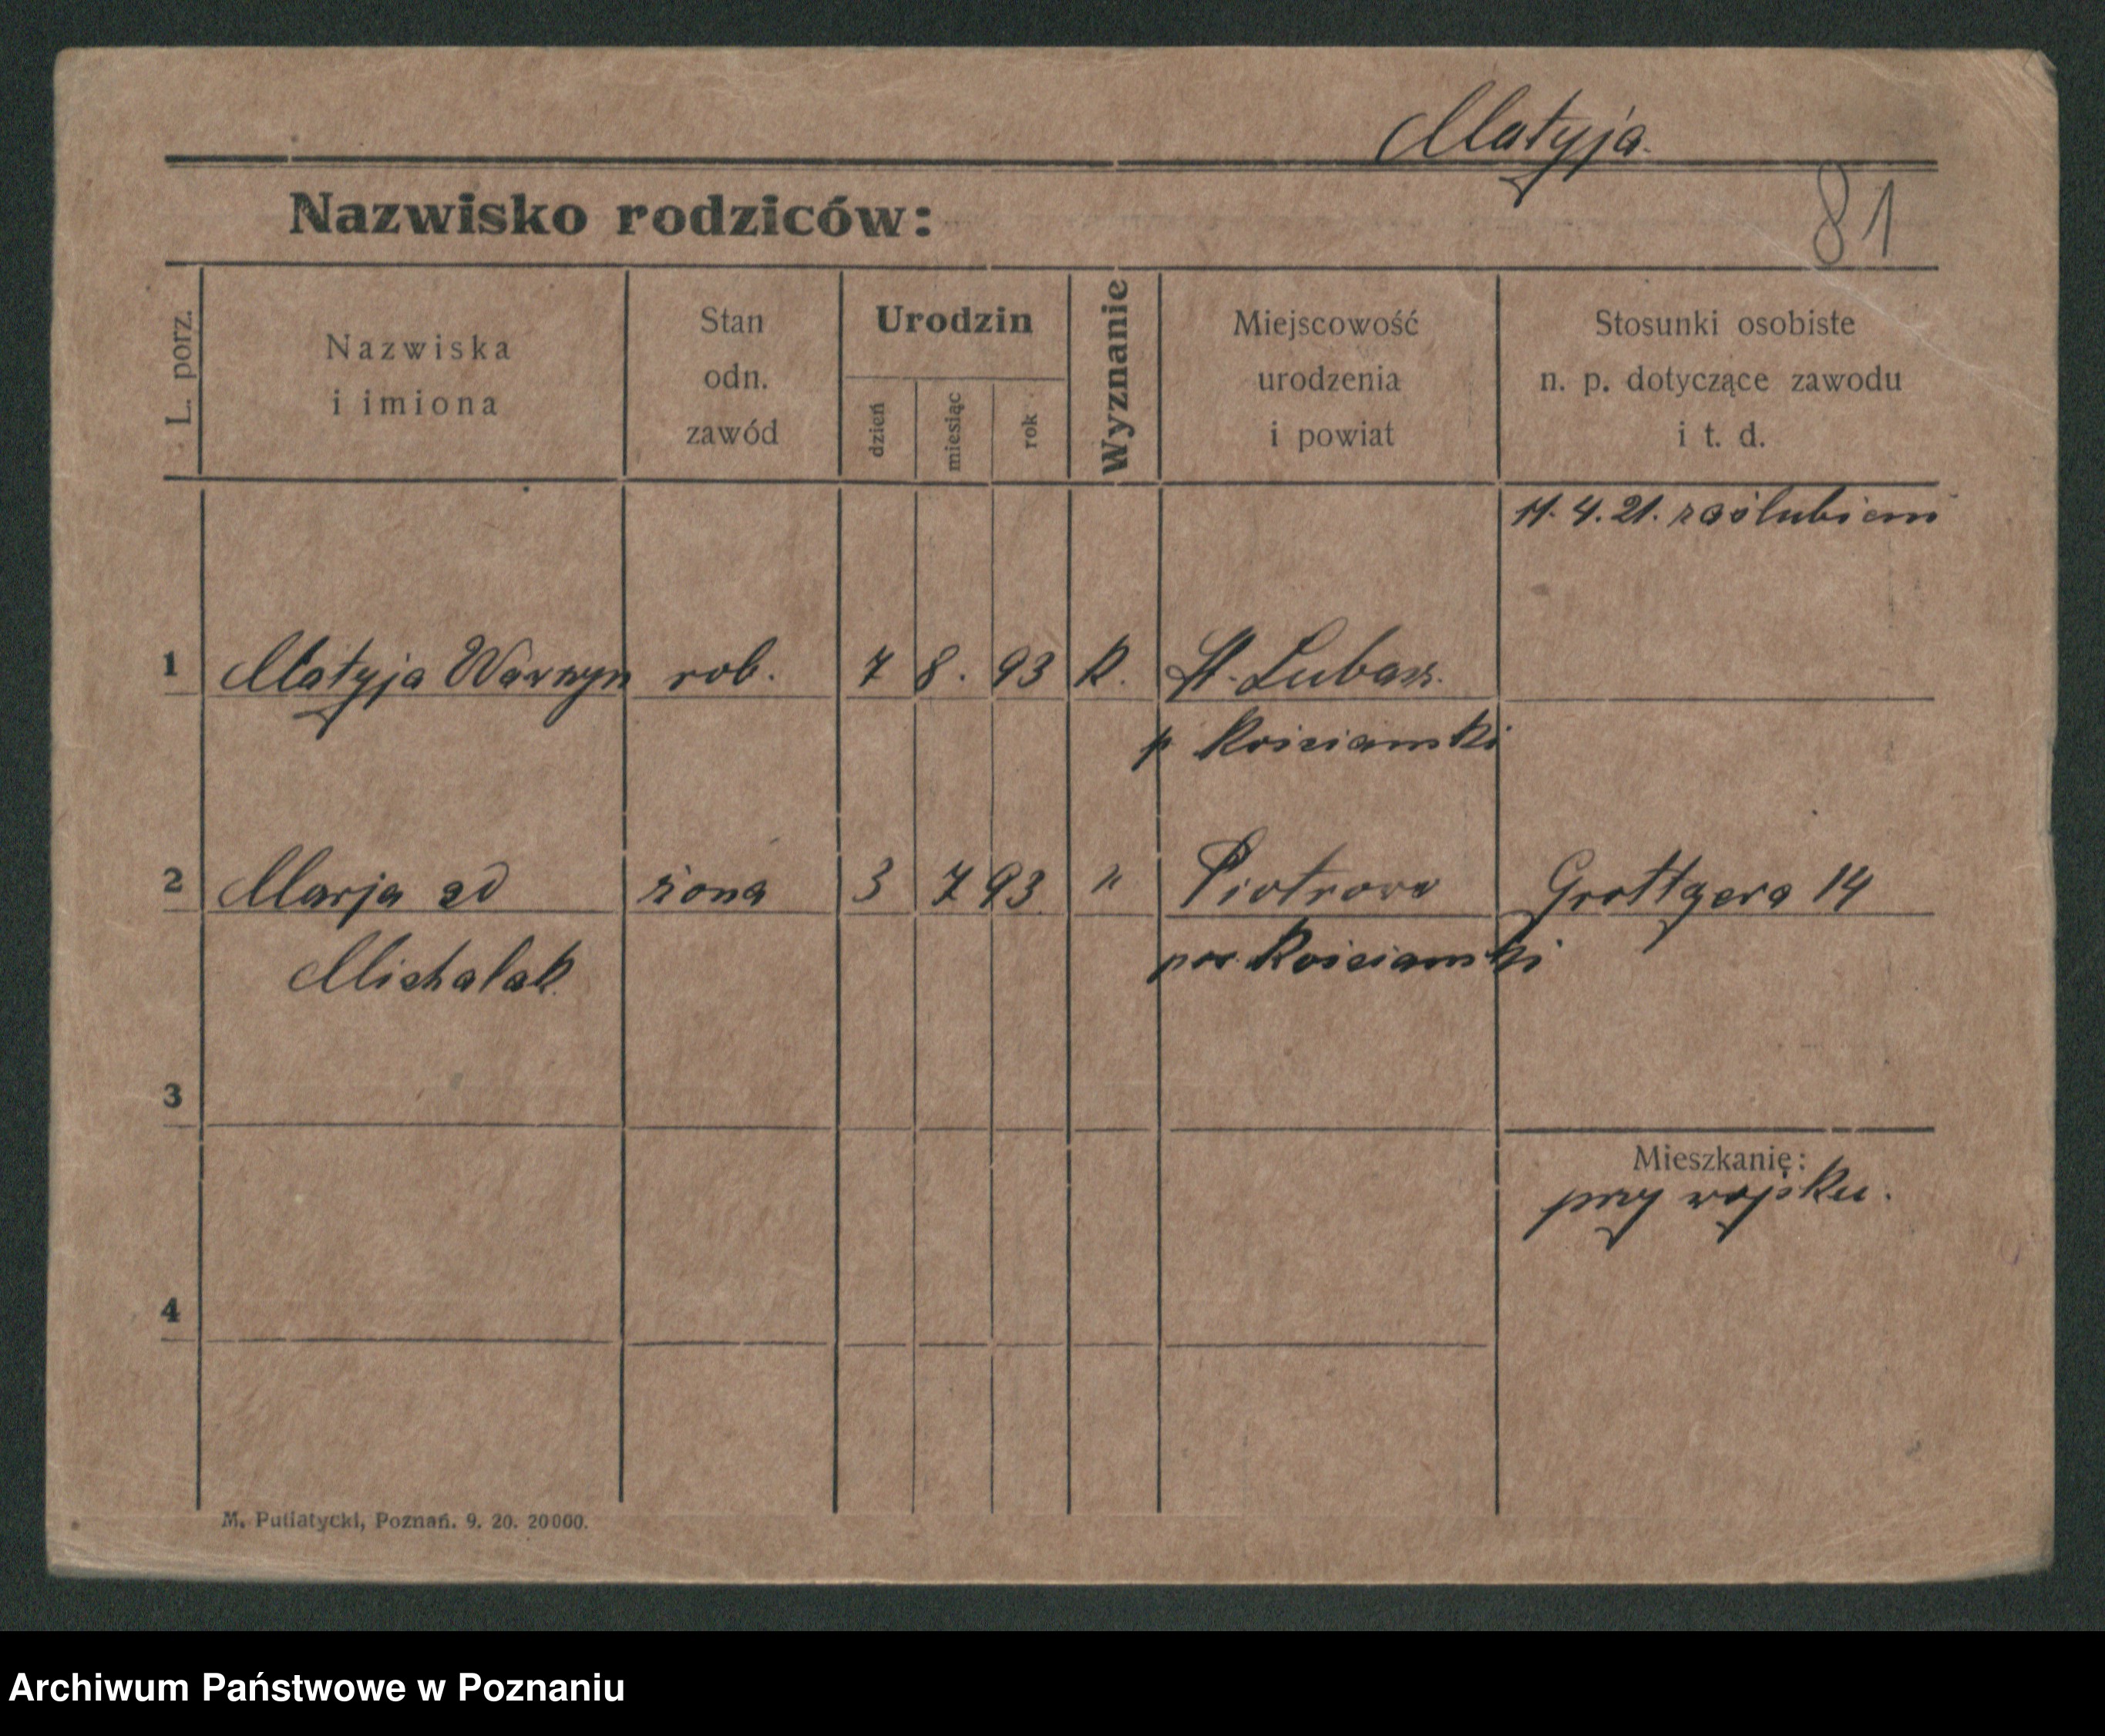 Matyja.
81
Nazwisko rodziców:
L. porz.
Nazwiska
i imiona
Stan
odn.
zawód
Urodzin
dzień
miesiąc
rok
Wyznanie
Miejscowość
urodzenia
i powiat
Stosunki osobiste
n. p. dotyczące zawodu
i t. d.
11. 4. 21. zaślubieni
1 Matyja Wawrzyn rob. 7 8. 93 k. St. Lubosz.
p Kościański
2 Marja zd żona 3 7 93 " Piotrowo Grottgera 14
Michalak. pow. Kościański
3
Mieszkanie:
przy wojsku.
4
M. Putiatycki, Poznań. 9. 20. 20000.
Archiwum Państwowe w Poznaniu